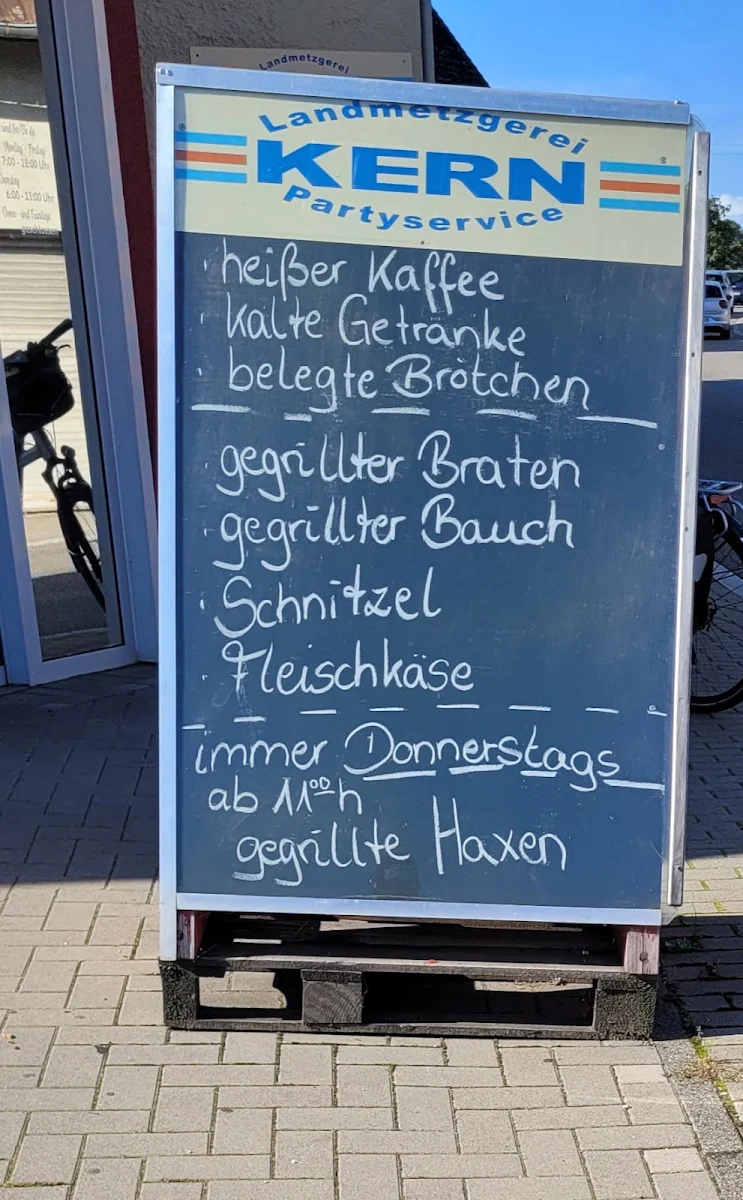 Landmetzgerei
Landmetzgerei
KERN
Partyservice
· heißer Kaffee
· kalte Getränke
· belegte Brötchen
· gegrillter Braten
· gegrillter Bauch
· Schnitzel
· Fleischkäse
immer Donnerstags
ab 11⁰⁰h
gegrillte Haxen
Montag - Freitag
7:00 - 18:00 Uhr
6:00 - 13:00 Uhr